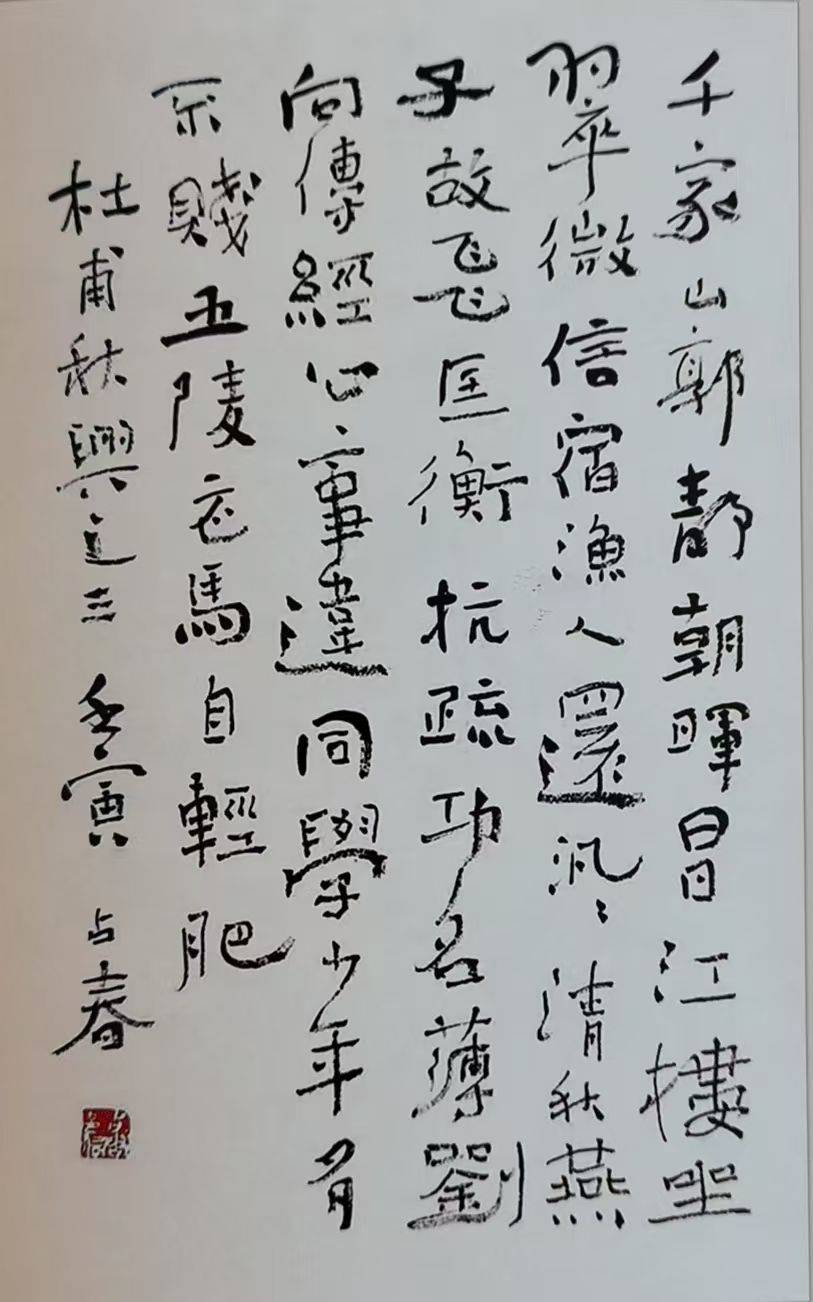 千家山郭靜朝暉日日江樓坐
翠微信宿漁人還汎〻清秋燕
子故飞飞匡衡抗疏功名薄劉
向傳經心事違同學少年多
不賤五陵衣馬自輕肥
杜甫秋興之三 壬寅 占春